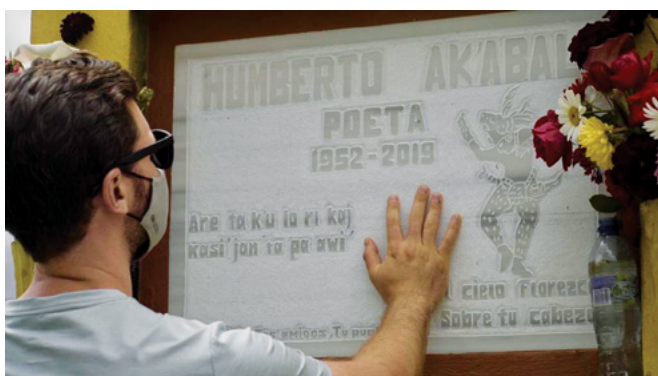 HUMBERTO AK'ABAL
POETA
1952-2019
Are ta k'u la ri kaj
kasi'jan ta pa awi'
cielo florezc
Sobre tu cabeza
amigos, Tu